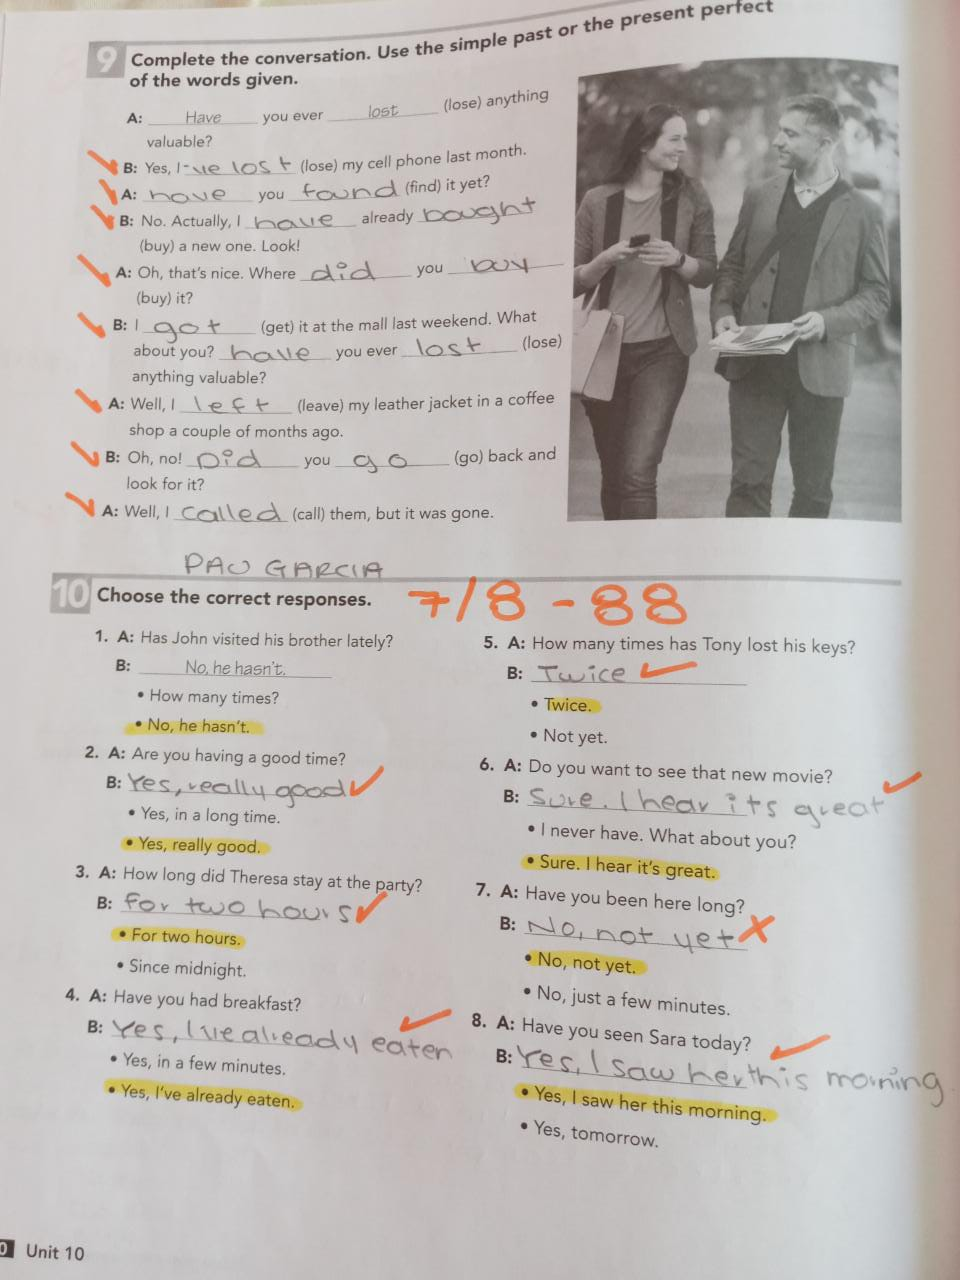 9 Complete the conversation. Use the simple past or the present perfect
of the words given.
A: Have you ever lost (lose) anything
valuable?
B: Yes, I-ve lost (lose) my cell phone last month.
A: have you found (find) it yet?
B: No. Actually, I have already bought
(buy) a new one. Look!
A: Oh, that's nice. Where did you buy
(buy) it?
B: I got (get) it at the mall last weekend. What
about you? have you ever lost (lose)
anything valuable?
A: Well, I left (leave) my leather jacket in a coffee
shop a couple of months ago.
B: Oh, no! Did you go (go) back and
look for it?
A: Well, I called (call) them, but it was gone.
PAU GARCIA
10 Choose the correct responses. 7/8 - 88
1. A: Has John visited his brother lately?
B: No, he hasn't.
• How many times?
• No, he hasn't.
2. A: Are you having a good time?
B: Yes, really good
• Yes, in a long time.
• Yes, really good.
3. A: How long did Theresa stay at the party?
B: For two hours
• For two hours.
• Since midnight.
4. A: Have you had breakfast?
B: Yes, I've already eaten
• Yes, in a few minutes.
• Yes, I've already eaten.
5. A: How many times has Tony lost his keys?
B: Twice
• Twice.
• Not yet.
6. A: Do you want to see that new movie?
B: Sure. I hear its great
• I never have. What about you?
• Sure. I hear it's great.
7. A: Have you been here long?
B: No, not yet
• No, not yet.
• No, just a few minutes.
8. A: Have you seen Sara today?
B: Yes, I saw her this morning
• Yes, I saw her this morning.
• Yes, tomorrow.
0 Unit 10